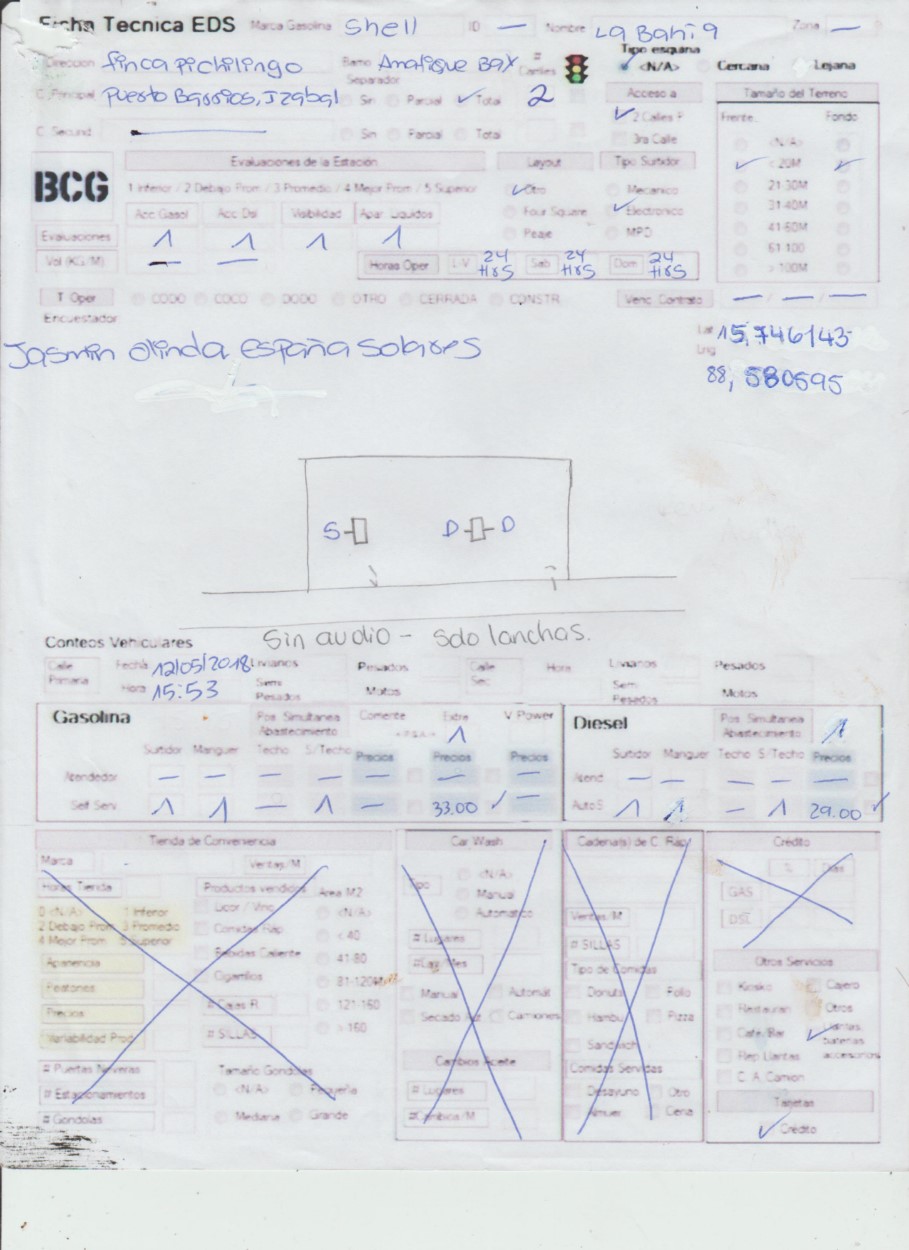 Ficha Tecnica EDS Marca Gasolina Shell ID — Nombre La Bahia Zona —
Direccion finca Pichilingo Barrio Amatique Bay # Carriles Tipo esquina <N/A> Cercana Lejana
Separador
C. Principal Puerto Barrios, Izabal Sin Parcial ✓ Total 2 Acceso a Tamaño del Terreno
✓ 2 Calles P Frente Fondo
C. Secund — Sin Parcial Total 3ra Calle <N/A>
BCG Evaluaciones de la Estación Layout Tipo Surtidor ✓ < 20M ✓
1 Inferior / 2 Debajo Prom / 3 Promedio / 4 Mejor Prom / 5 Superior ✓ Otro Mecanico 21-30M
Acc Gasol Acc Dsl Visibilidad Apar Liquidos Four Square ✓ Electronico 31-40M
Evaluaciones 1 1 1 1 Peaje MPD 41-60M
61-100
Vol (KG/M) — — Horas Oper L-V 24 Hrs Sab 24 Hrs Dom 24 Hrs > 100M
T Oper CODO COCO DODO OTRO CERRADA CONSTR. Venc Contrato — / — / —
Encuestador
Jasmin Olinda España Solares Lat 15,746143
Lng 88, 580595
S D D
Sin audio - solo lanchas.
Conteos Vehiculares
Calle Primaria Fecha 12/05/2018 Livianos Pesados Calle Sec Hora Livianos Pesados
Hora 15:53 Semi Pesados Motos Semi Pesados Motos
Gasolina Pos Simultanea Abastecimiento Corriente Extra 1 V Power Diesel Pos Simultanea Abastecimiento 1
Surtidor Manguer Techo S/Techo Precios Precios Precios Surtidor Manguer Techo S/Techo Precios
Atendedor — — — — — — — Atend — — — — —
Self Serv 1 1 — 1 — 33.00 ✓ — Auto S 1 1 — 1 29.00 ✓
Tienda de Conveniencia Car Wash Cadena(s) de C. Rap Crédito
Marca Ventas/M <N/A> % Dias
Horas Tienda Productos vendidos Area M2 Tipo Manual GAS
0 <N/A> 1 Inferior Licor / Vino <N/A> Automatico Ventas/M DSL
2 Debajo Prom 3 Promedio Comidas Rap < 40 # Lugares # SILLAS
4 Mejor Prom 5 Superior Bebidas Caliente 41-80 Otros Servicios
Apariencia Cigarrillos 81-120M Tipo de Comidas Kiosko Cajero
Peatones # Cajas R. 121-160 Manual Automat Donuts Pollo Restauran Otros
Precios # SILLAS > 160 Camiones Hambu Pizza Cafe/Bar ✓ Llantas baterias accesorios
Variabilidad Prod Sandwich Rep Llantas
# Puertas Neveras Tamaño Gondolas Cambios Aceite Comidas Servidas C. A. Camion
# Estacionamientos <N/A> Pequeña # Lugares Desayuno Otro Tarjetas
# Gondolas Mediana Grande #Cambios/M Almuer Cena ✓ Crédito